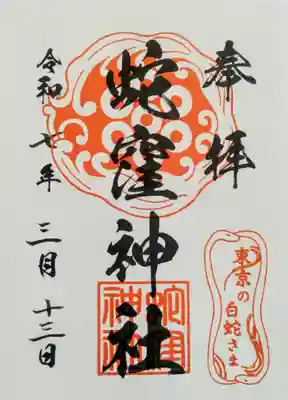 奉拝
蛇窪神社
令和七年 三月 十三日
東京の
白蛇さま
蛇窪
神社